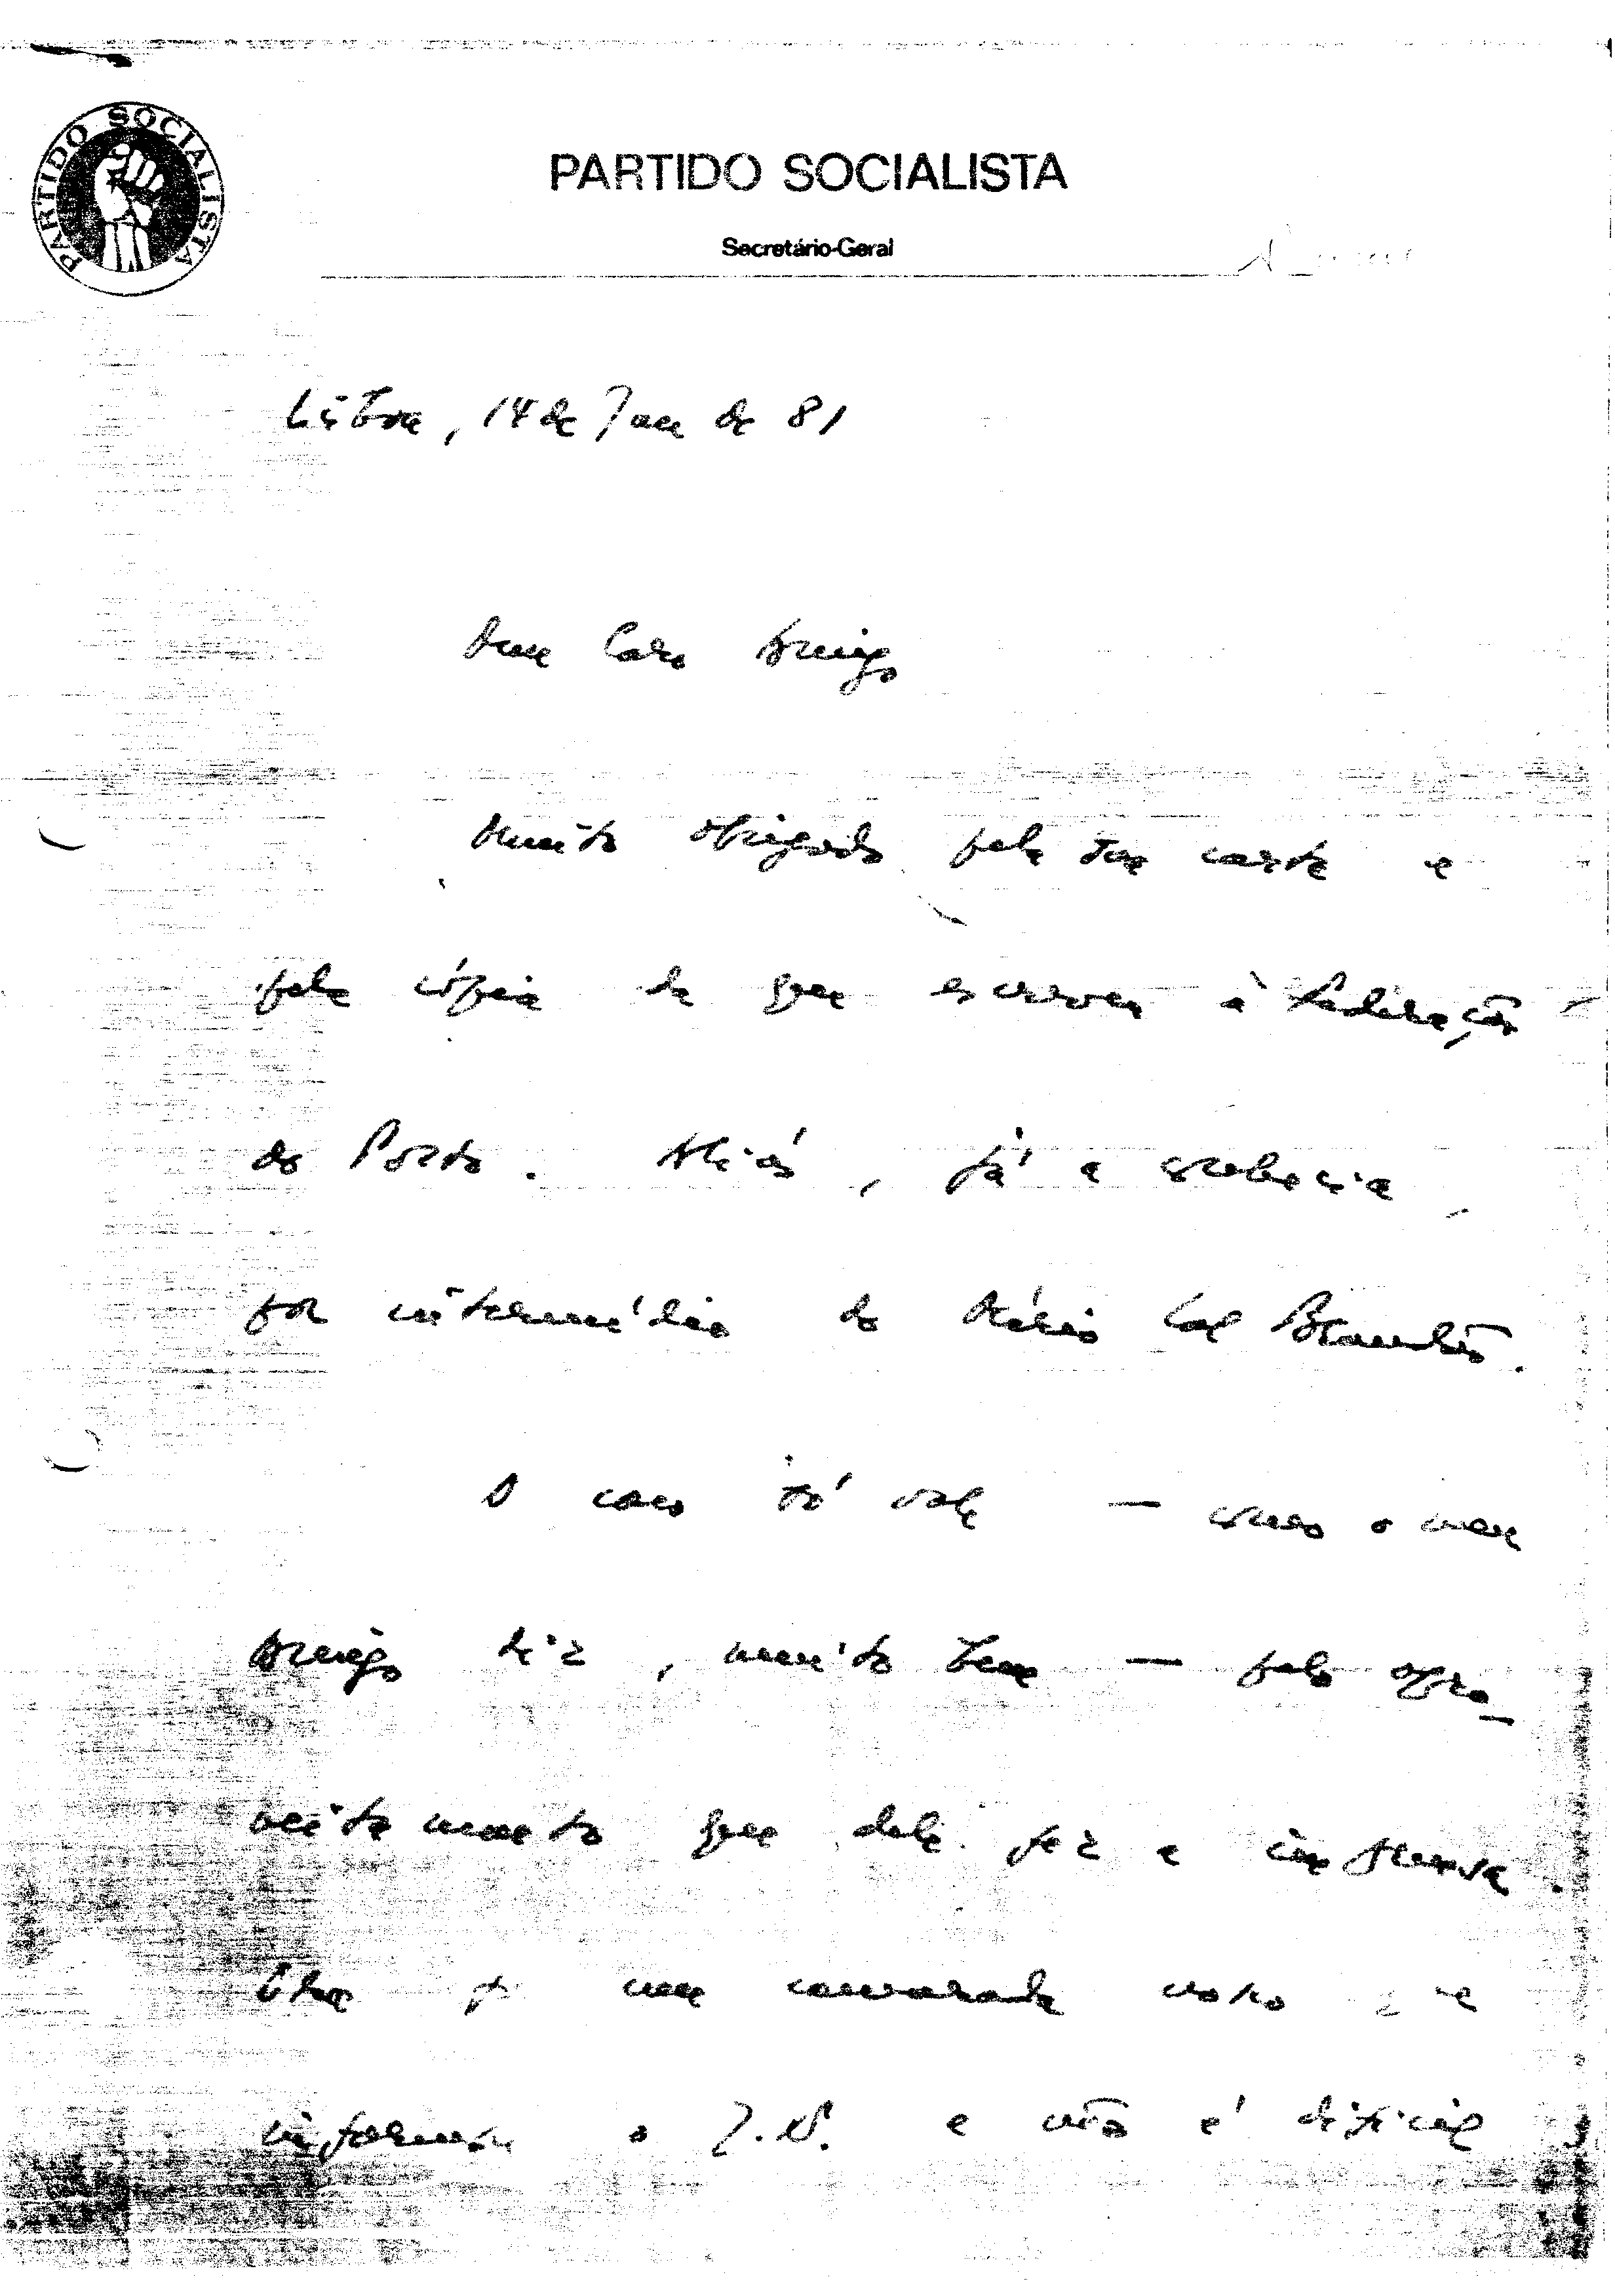 PARTIDO SOCIALISTA
PARTIDO SOCIALISTA
Secretário-Geral
Lisboa, 14 de Jan de 81
Meu Caro Amigo
Muito obrigado pela sua carta e
pela cópia da que escreveu à Federação
do Porto. Aliás, já a conhecia
por intermédio do Mário Cal Brandão.
O caso só vale — como o meu
Amigo diz, muito bem — pelo apro-
veitamento que dele fez a imprensa.
um camarada nosso que
informou o J.N. e não é difícil